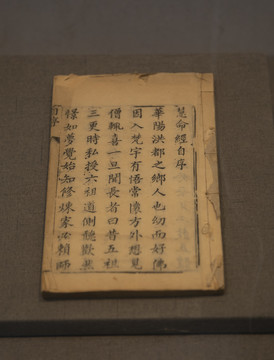 慧命經自序
華陽洪都之鄉人也幼而好佛
因入梵宇有悟常懷方外想見
僧輒喜一旦聞長者曰昔五祖
三更時私授六祖道側聽歡然
憬如夢覺始知修煉家必賴師
自序